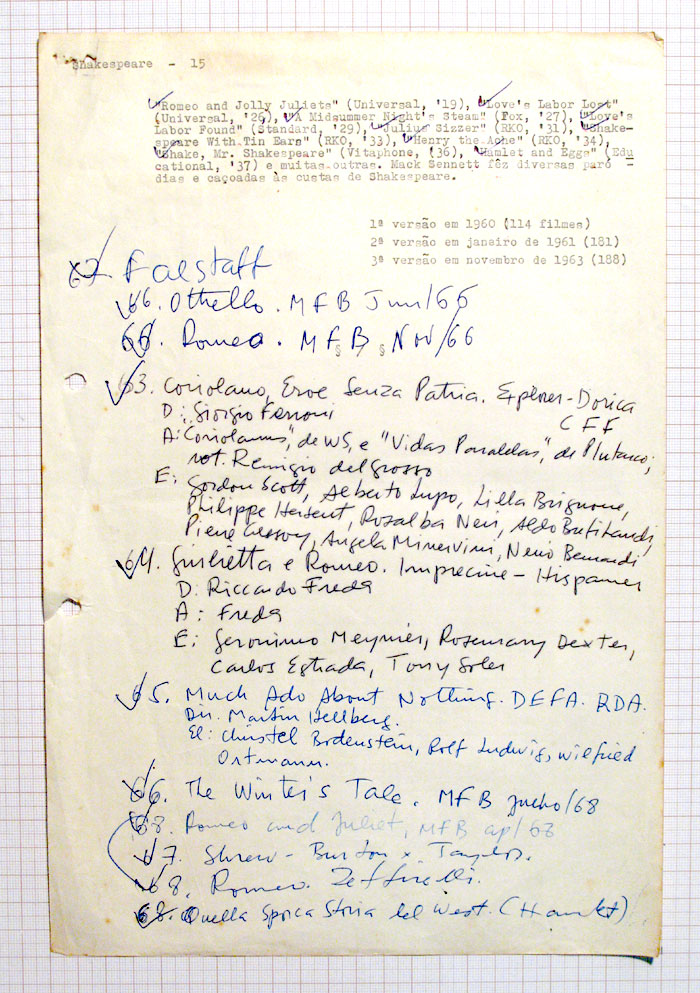 Shakespeare - 15
"Romeo and Jolly Juliets" (Universal, '19), "Love's Labor Lost"
(Universal, '26), "A Midsummer Night's Steam" (Fox, '27), "Love's
Labor Found" (Standard, '29), "Julius Sizzer" (RKO, '31), "Shake-
speare With Tin Ears" (RKO, '33), "Henry the Ache" (RKO, '34),
"Shake, Mr. Shakespeare" (Vitaphone, '36), "Hamlet and Eggs" (Edu
cational, '37) e muitas outras. Mack Sennett fêz diversas paró
dias e caçoadas às custas de Shakespeare.
1ª versão em 1960 (114 filmes)
2ª versão em janeiro de 1961 (181)
3ª versão em novembro de 1963 (188)
Falstaff
66. Othello. MFB Jun/66
66. Romeo. MFB Nov/66
63. Coriolano, Eroe Senza Patria. Explorer-Dorica
CFF
D: Giorgio Ferroni
A: "Coriolanus", de WS, e "Vidas Paralelas", de Plutarco;
rot. Remigio del Grosso
E: Gordon Scott, Alberto Lupo, Lilla Brignone,
Philippe Hersent, Rosalba Neri, Aldo Bufi Landi,
Pierre Cressoy, Angela Minervini, Nerio Bernardi
64. Giulietta e Romeo. Imprecine - Hispamer
D: Riccardo Freda
A: Freda
E: Geronimo Meynier, Rosemary Dexter,
Carlos Estrada, Tony Soler
65. Much Ado About Nothing. DEFA. RDA.
Dir. Martin Hellberg.
El: Christel Bodenstein, Rolf Ludwig, Wilfried
Ortmann.
66. The Winter's Tale. MFB julho/68
68. Romeo and Juliet, MFB ap/68
67. Shrew - Burton x Taylor.
68. Romeo. Zeffirelli.
68. Quella Sporca Storia del West. (Hamlet)